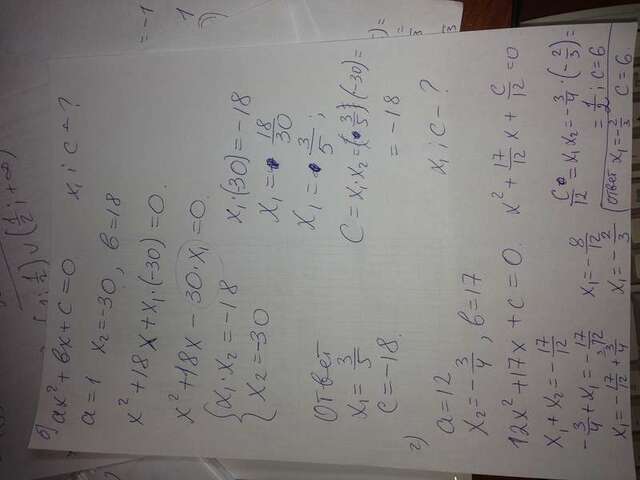 б) ax² + bx + c = 0   x₁; c - ?
a = 1   x₂ = -30, b = 18
x² + 18x + x₁·(-30) = 0.
x² + 18x - 30·x₁ = 0.
{ x₁·x₂ = -18   x₁·(30) = -18
x₂ = -30   x₁ = 18/30
x₁ = 3/5;
Ответ
x₁ = 3/5   C = x₁x₂ = (3/5)(-30) =
c = -18.   = -18
г)
a = 12   x₁; c - ?
x₂ = -3/4, b = 17
12x² + 17x + c = 0.   x² + 17/12 x + c/12 = 0
x₁ + x₂ = -17/12
-3/4 + x₁ = -17/12   x₁ = -8/12   c/12 = x₁x₂ = -3/4·(-2/3) =
x₁ = -17/12 + 3/4   x₁ = -2/3   = 1/2; c = 6
Ответ x₁ = -2/3   c = 6